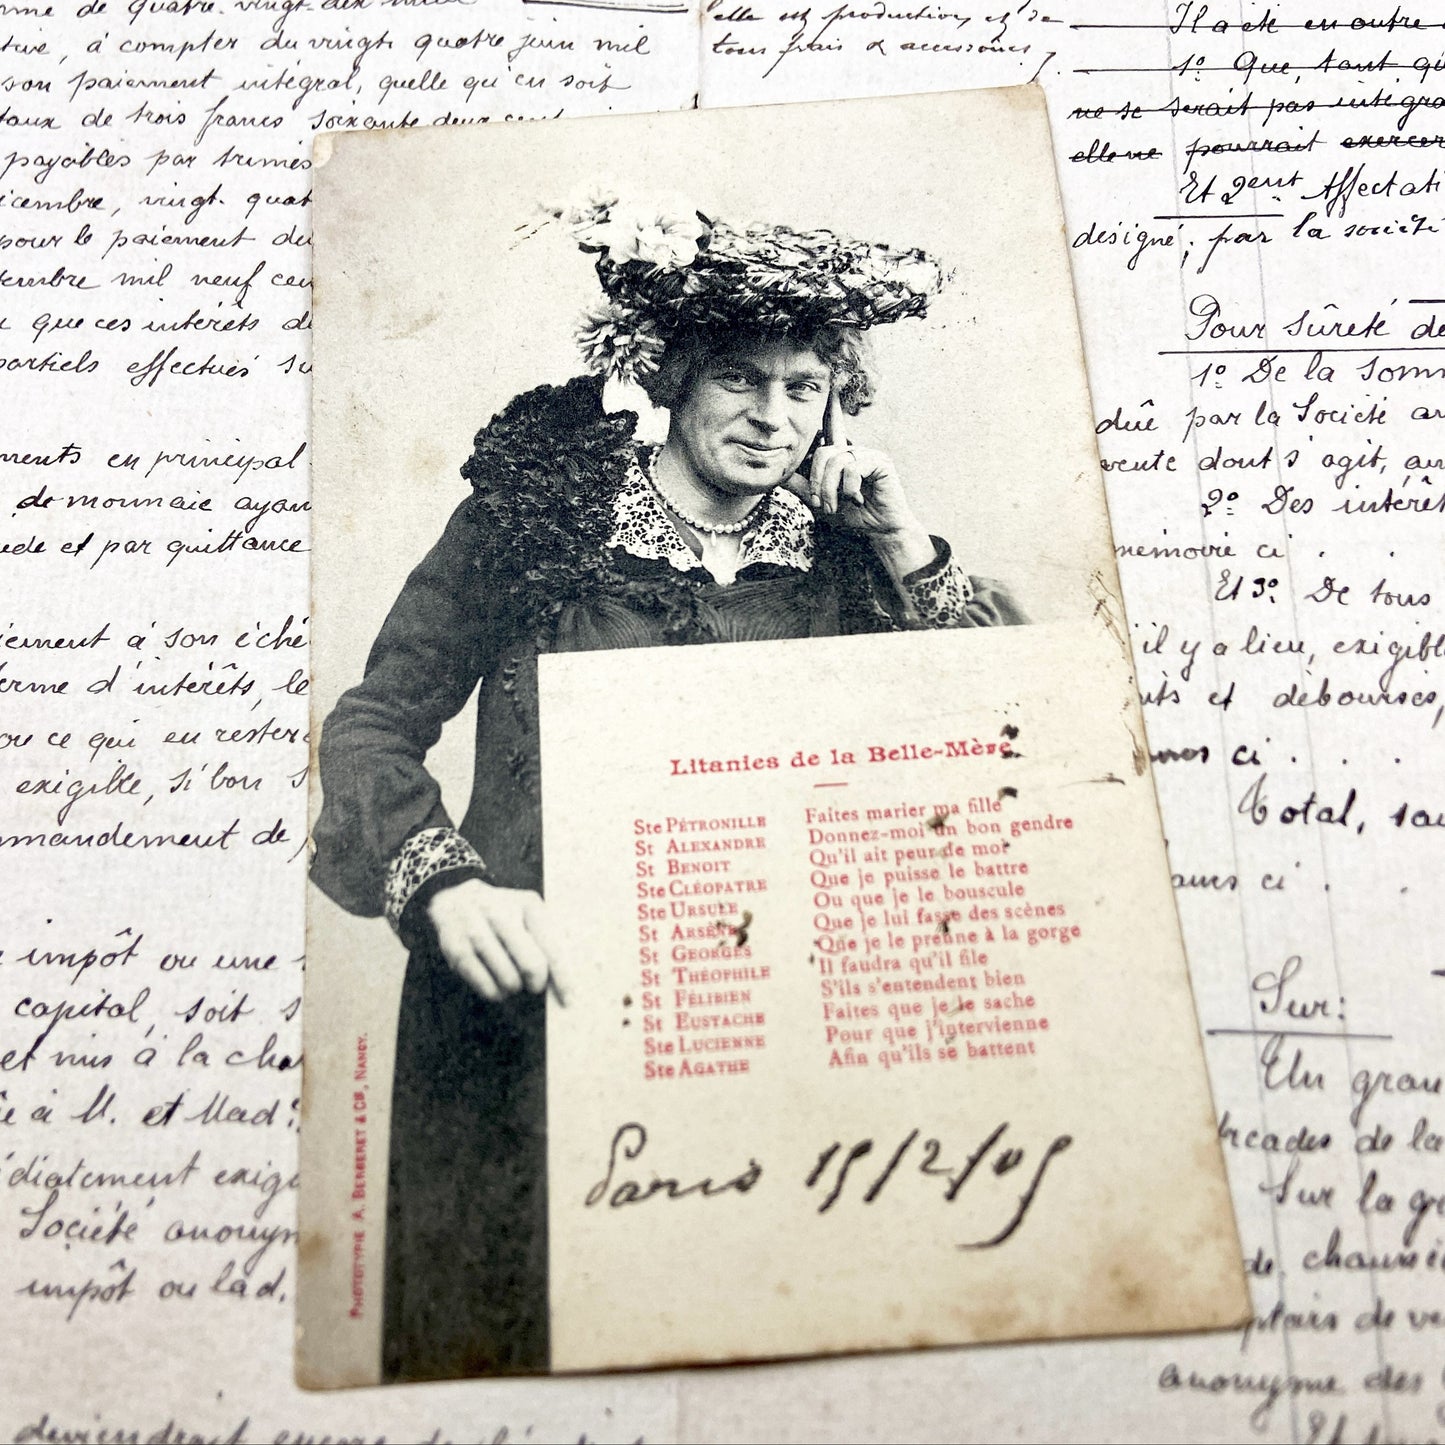 me de quatre-vingt-dix mille
tive, à compter du vingt quatre juin mil
son paiement intégral, quelle qu'en soit
taux de trois francs soixante deux cent
payables par trimes
icembre, vingt-quat
pour le paiement du
tembre mil neuf cen
que ces intérêts de
partiels effectués su
ments en principal
de monnaie ayan
ède et par quittance
iement à son éché
erme d'intérêts, le
ou ce qui en restera
exigible, si bon s
mmandement de
impôt ou une
capital, soit s
et mis à la cha
à M. et Mad
édiatement exigi
Société anonym
impôt ou lad.
deviendrait encore
elle est production, et de
tous frais & accessoires,
Il a été en outre
1º Que, tant qu
ne se serait pas intégra
elle ne pourrait exercer
Et 2ent Affectati
désigné; par la société
Pour sûreté de
1º De la somm
dûe par la Société an
vente dont s'agit, au
2º Des intérêt
mémoire ci . .
Et 3º De tous
il y a lieu, exigible
its et déboursés,
ci . . .
Total, sau
ci . .
Sur:
Un gran
arcades de la
Sur la gr
de chaussé
anonyme des
Litanies de la Belle-Mère
Ste PÉTRONILLE Faites marier ma fille
St ALEXANDRE Donnez-moi un bon gendre
St BENOIT Qu'il ait peur de moi
Ste CLÉOPATRE Que je puisse le battre
Ste URSULE Ou que je le bouscule
St ARSÈNE Que je lui fasse des scènes
St GEORGES Que je le prenne à la gorge
St THÉOPHILE Il faudra qu'il file
St FÉLIBIEN S'ils s'entendent bien
St EUSTACHE Faites que je le sache
Ste LUCIENNE Pour que j'intervienne
Ste AGATHE Afin qu'ils se battent
Paris 15/2/05
PHOTOTYPIE A. BERGERET & Cie, NANCY.